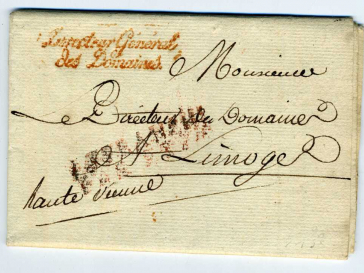 Inspecteur Général
des Domaines.
Monsieur
Le Directeur du Domaine
A Limoges
haute vienne